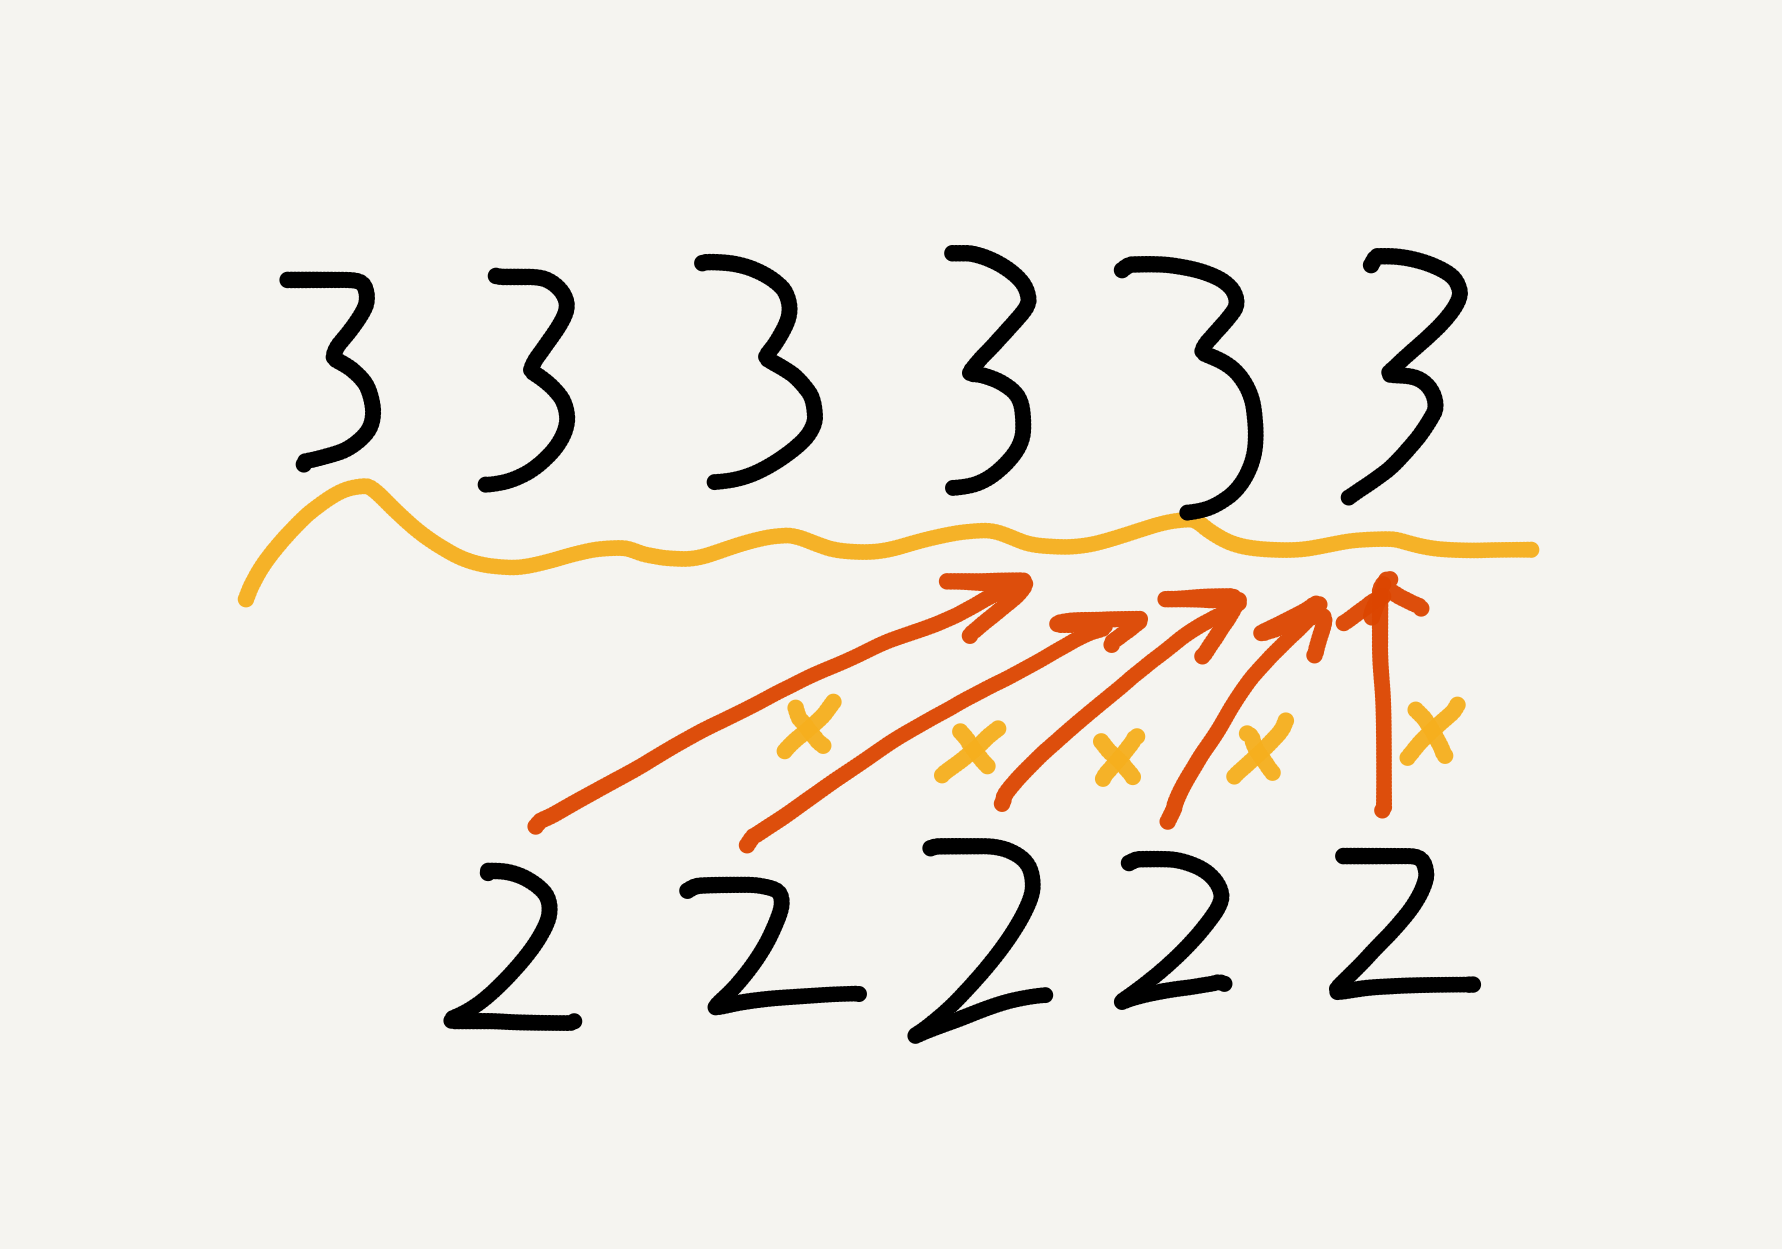 3 3 3 3 3 3
x x x x x
2 2 2 2 2